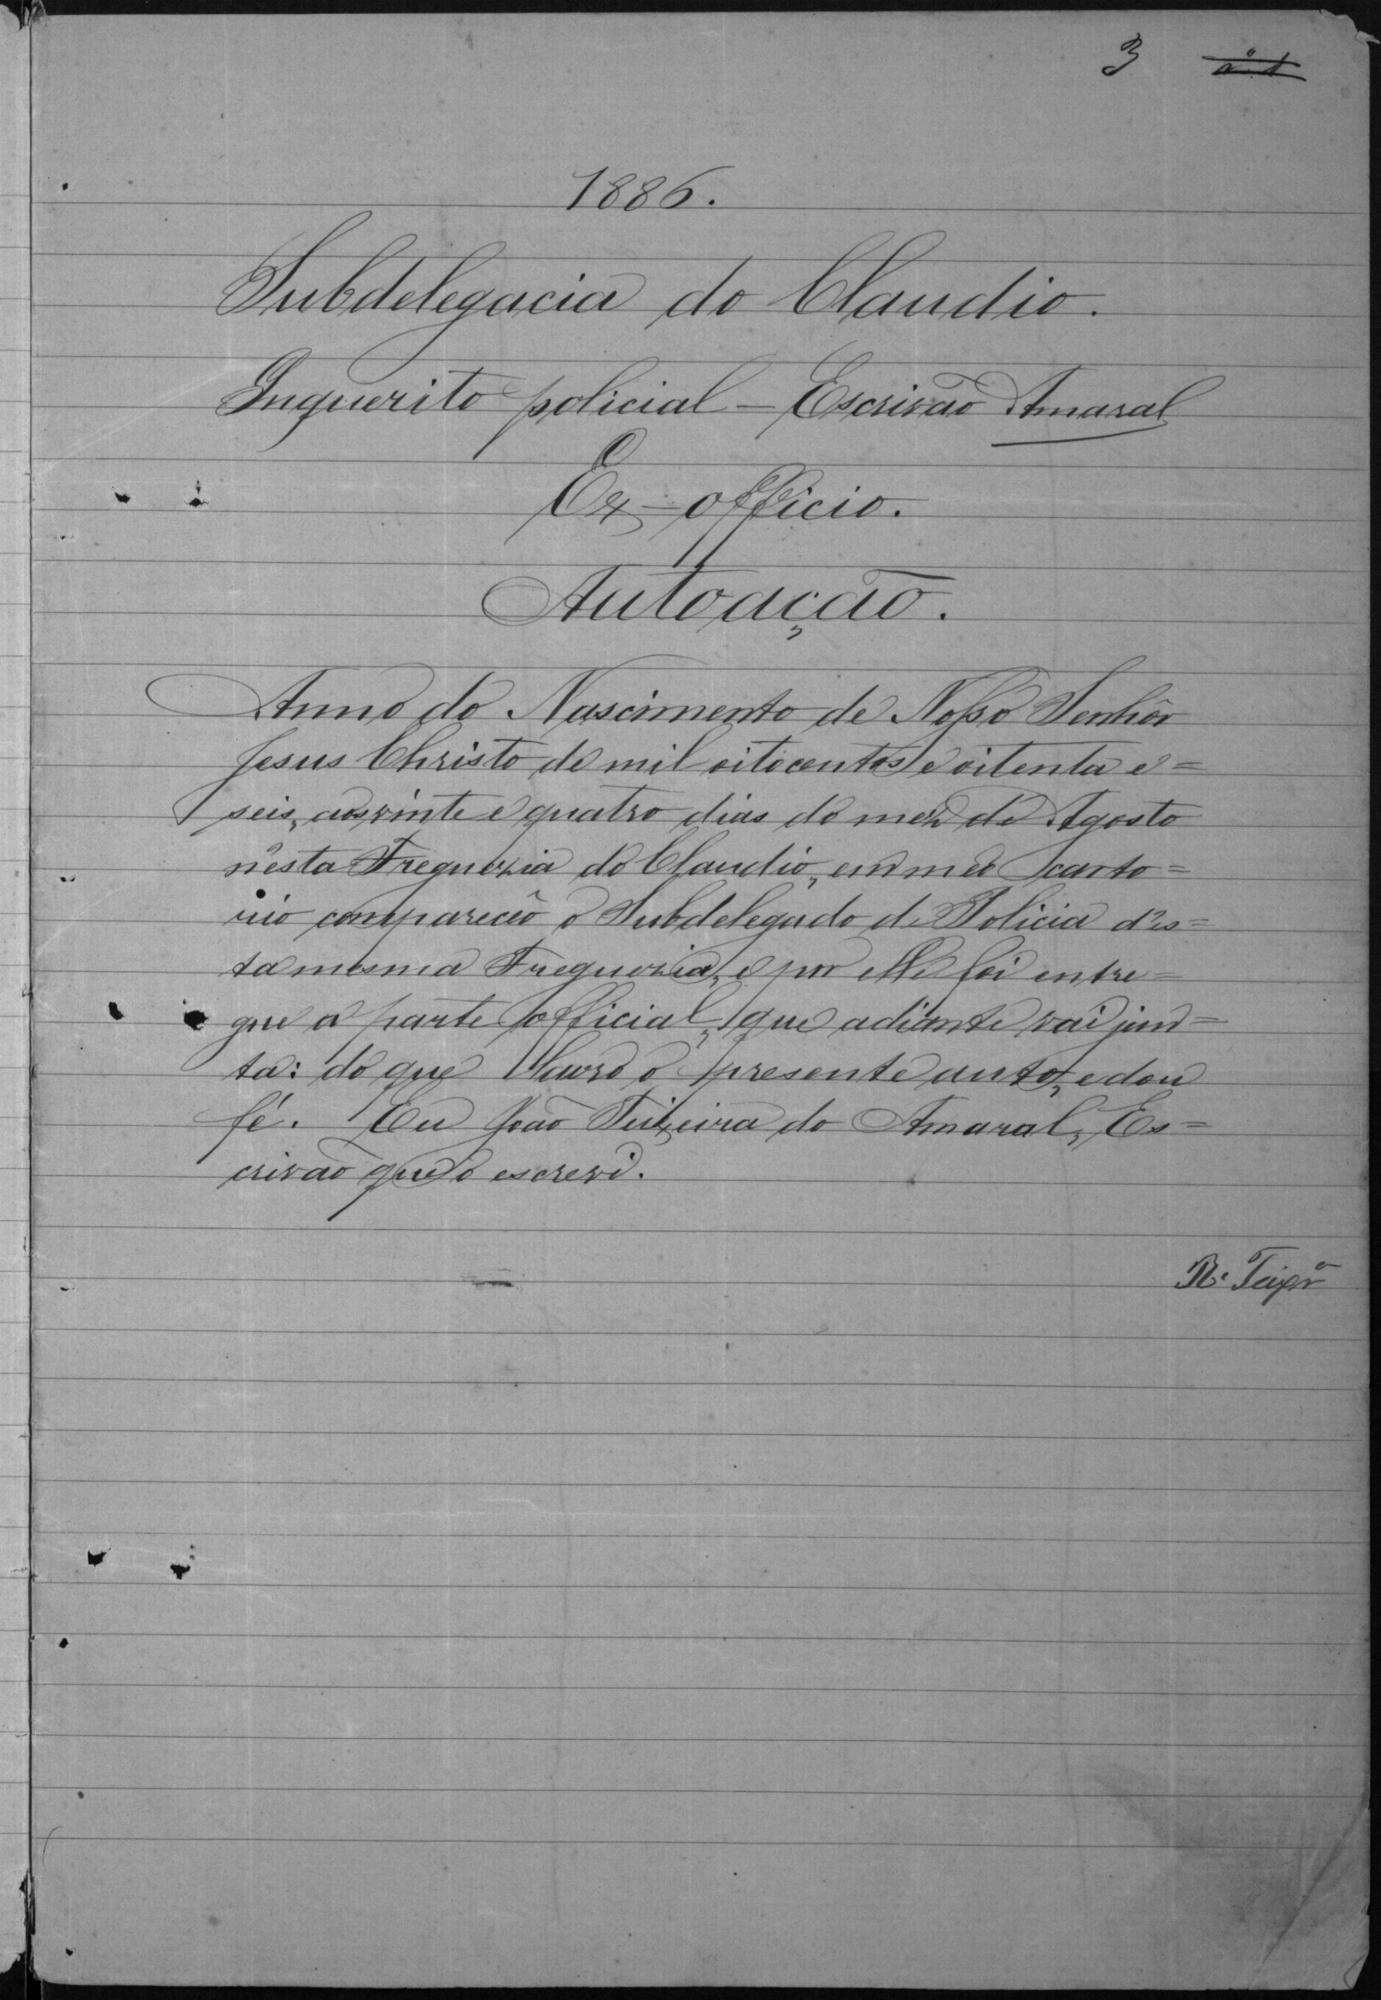 3
1886.
Subdelegacia do Claudio.
Inquerito policial — Escrivão Amaral
Ex-officio.
Autoação.
Anno do Nascimento de Nosso Senhôr
Jesus Christo de mil oitocentos e oitenta e=
seis, aos vinte e quatro dias do mez de Agosto
n'esta Freguezia do Claudio, em meo carto=
rio compareceo o Subdelegado de Policia d'es=
ta mesma Freguezia, e por elle foi entre=
gue a parte official, que adiante vai jun=
ta: do que lavro o presente auto, e dou
fé. Eu João Teixeira do Amaral, Es=
crivão que o escrevi.
R. Teixrª